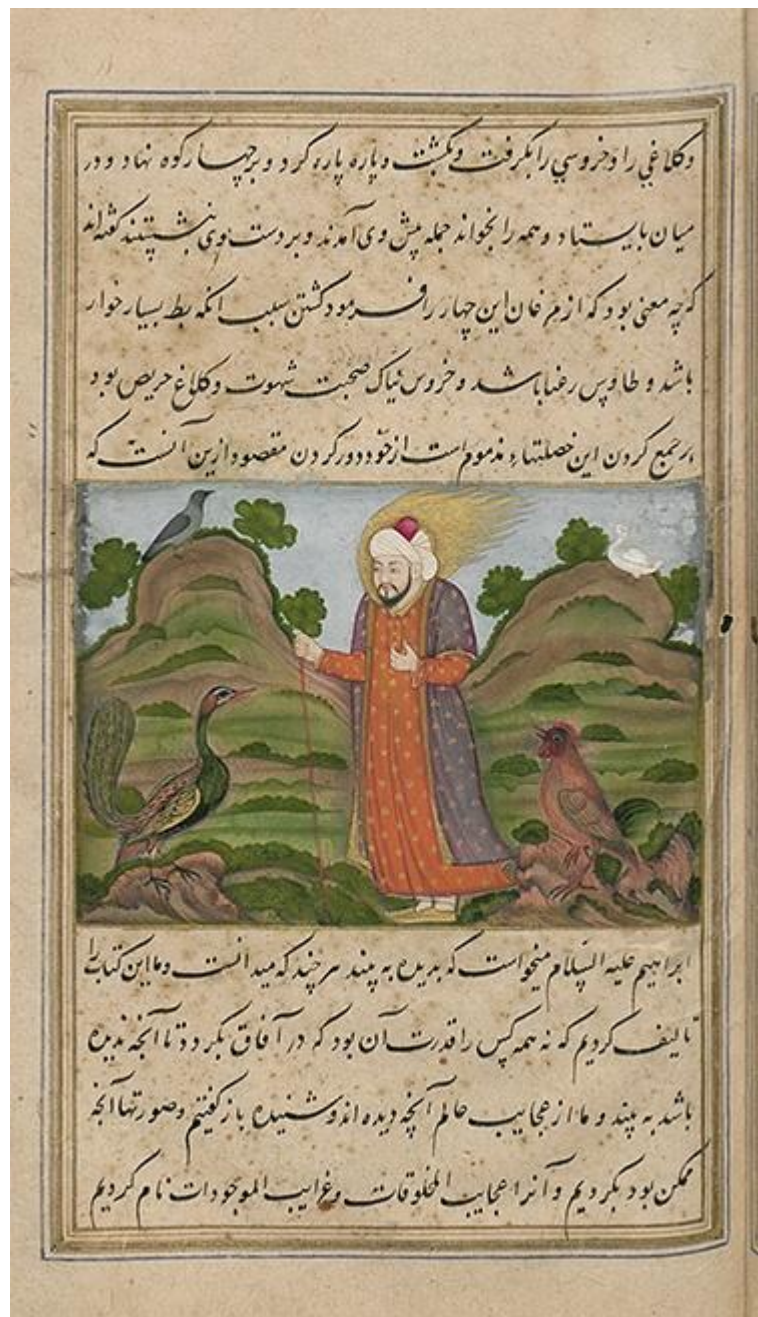 وکلاغی را وخروسی را بکرفت وبکشت وپاره پاره کرد وبرچهار کوه نهاد ودر
میان بایستاد وهمه را بخواند جمله پیش وی آمدند وبر دست وی بنشستند کفته اند
که چه معنی بود که از مرغان این چهار را فرمود کشتن سبب انکه بط بسیار خوار
باشد و طاوس رعنا باشد وخروس نیاک صحبت شهوت وکلاغ حریص بود
بر جمع کردن این خصلتهاء مذموم است از خود دور کردن مقصود ازین آنست که
ابراهیم علیه السلام میخواست که بدیده به بیند هر چند که میدانست وما این کتاب را
تالیف کردیم که نه همه کس را قدرت آن بود که در آفاق بکردد تا آنچه ندیده
باشد به بیند و ما از عجایب عالم آنچه دیده اند وشنیده باز کفتیم وصورتها آنچه
ممکن بود بکردیم وآنرا عجایب المخلوقات وغرایب الموجودات نام کردیم